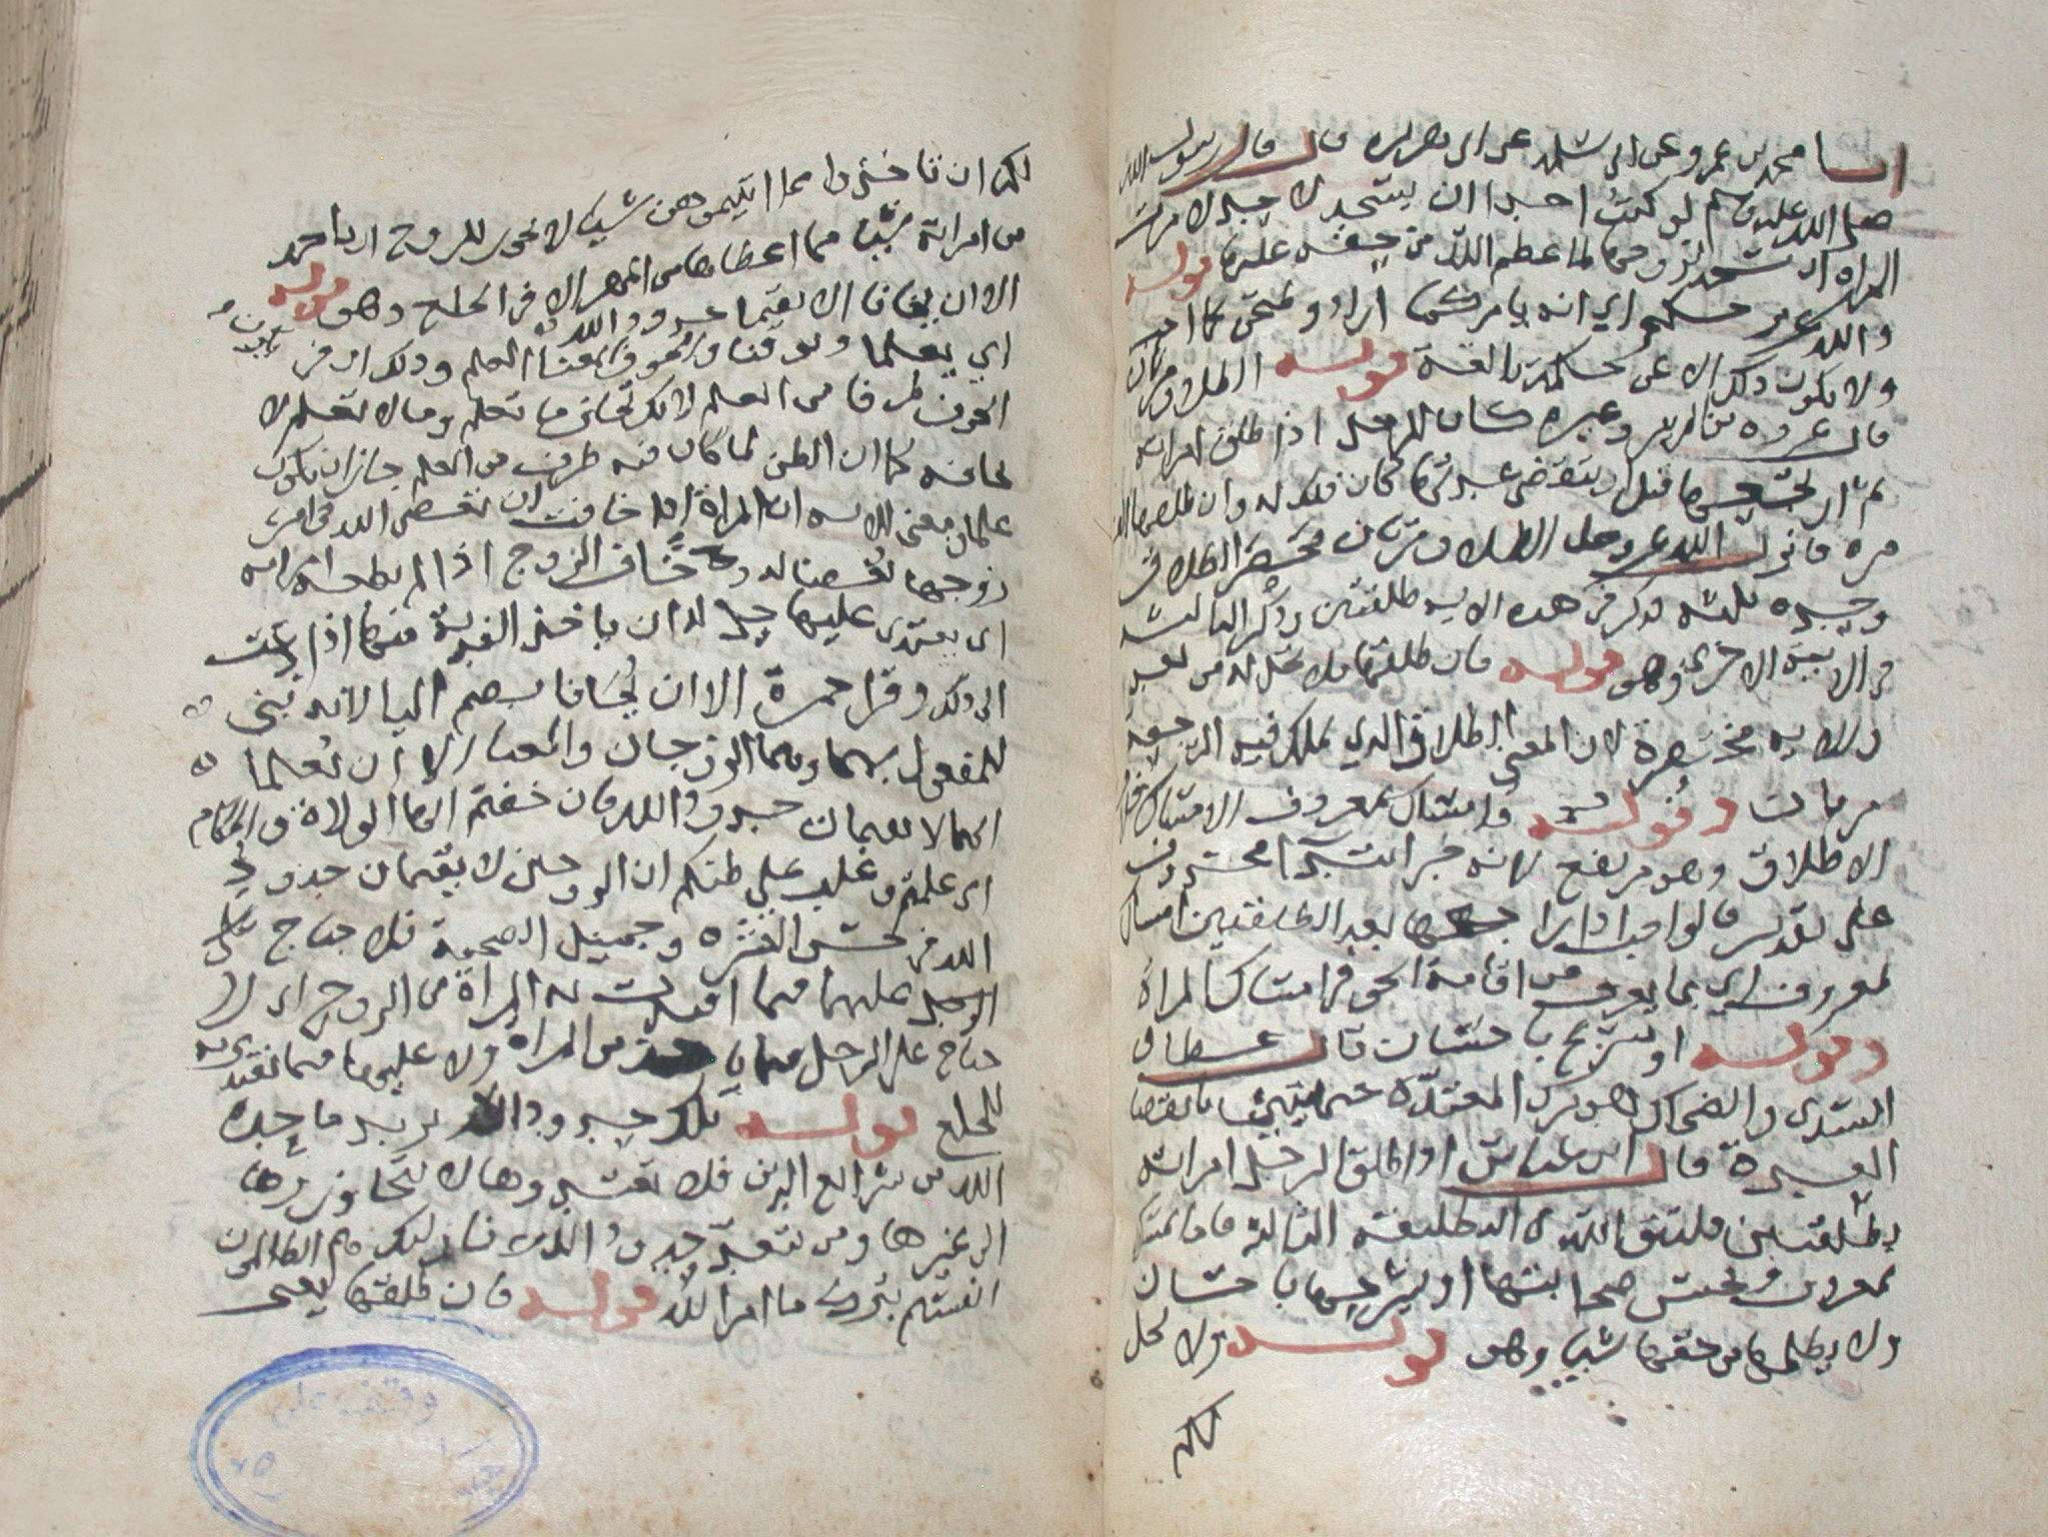 انبا محمد بن عمرو عن ابى سلمه عن ابى هريره قال قال رسول الله
صلى الله عليه وسلم لو كنت احدا ان يسجد لاحد لامرت
المراه ان تسجد لزوجها لما عظم الله من حقه عليها قوله
والله عزيز حكيم اى انه يامر كما اراد ويمتحن كما احب
ولا يكون ذلك الا عن حكمة بالغة قوله الطلاق مرتان
قال عروه بن الزبير وغيره كان الرجل اذا طلق امراته
ثم ارتجعها قبل ان تنقضى عدتها كان ذلك له وان طلقها الف
مره فانزل الله عز وجل الطلاق مرتان فحصر الطلاق
وحده ثلثه فذكر فى هذه الايه طلقتين وذكر الثالثه
فى الايه الاخرى وهو قوله فان طلقها فلا تحل له من بعد
والايه مختصرة لان المعنى الطلاق الذى يملك فيه الرجعه
مرتان وقوله فامساك بمعروف الامساك خلاف
الاطلاق وهو مرتفع لانه خبر ابتدا محذوف
على تقدير فالواجب اذا راجعها بعد الطلقتين امساك
بمعروف اى بما يعرف من اقامة الحق فى امساك المراة
وقوله او تسريح باحسان قال عطا و
السدى والضحاك هو ترك المعتدة حتى تبين بانقضا
العدة قال ابن عباس اذا طلق الرجل امراته
تطليقتين فليتق الله فى التطليقه الثالثة فاما يمسكها
بمعروف فيحسن صحابتها او يسرحها باحسان
ولا يظلمها من حقها شيا وهو قوله ولا يحل
لكم
لكم ان تاخذوا مما اتيتموهن شيا لا يجوز للزوج ان ياخذ
من امراته شيا مما اعطاها من المهر الا فى الخلع وهو قوله
الا ان يخافا الا يقيما حدود الله
اى يعلما ويوقنا والخوف بمعنا العلم وذلك ان فى
الخوف طرفا من العلم لانك تخاف ما تعلم وما لا تعلم لا
تخافه كما ان الظن لما كان فيه طرف من العلم جاز ان يكون
علما ومعنى الايه ان المراة اذا خافت ان تعصى الله فى امر
زوجها بغضا له وخاف الزوج اذا لم تطعه امراته
ان يعتدى عليها حل له ان ياخذ الفدية منها اذا دعت
الى ذلك وقرا حمزة الا ان يخافا بضم اليا لانه بنى
للمفعول بهما وهما الزوجان والمعنا الا ان يعلما
انهما لا يقيمان حدود الله فان خفتم ايها الولاة والحكام
اى علمتم وغلب على ظنكم ان الزوجين لا يقيمان حدود
الله فى حسن العشره وجميل الصحبة فلا جناح على
الرجل عليهما فيما افتدت به المراة من الزوج اى لا
جناح على الرجل فيما ياخذ من المراه ولا عليها فيما تفتدى به
للخلع قوله تلك حدود الله يريد ما حده
الله من شرايع الدين فلا تعتدوها لا تتجاوزوها
الى غيرها ومن يتعد حدود الله فاوليك هم الظالمون
انفسهم بترك ما امر الله قوله فان طلقها يعنى
وقف على